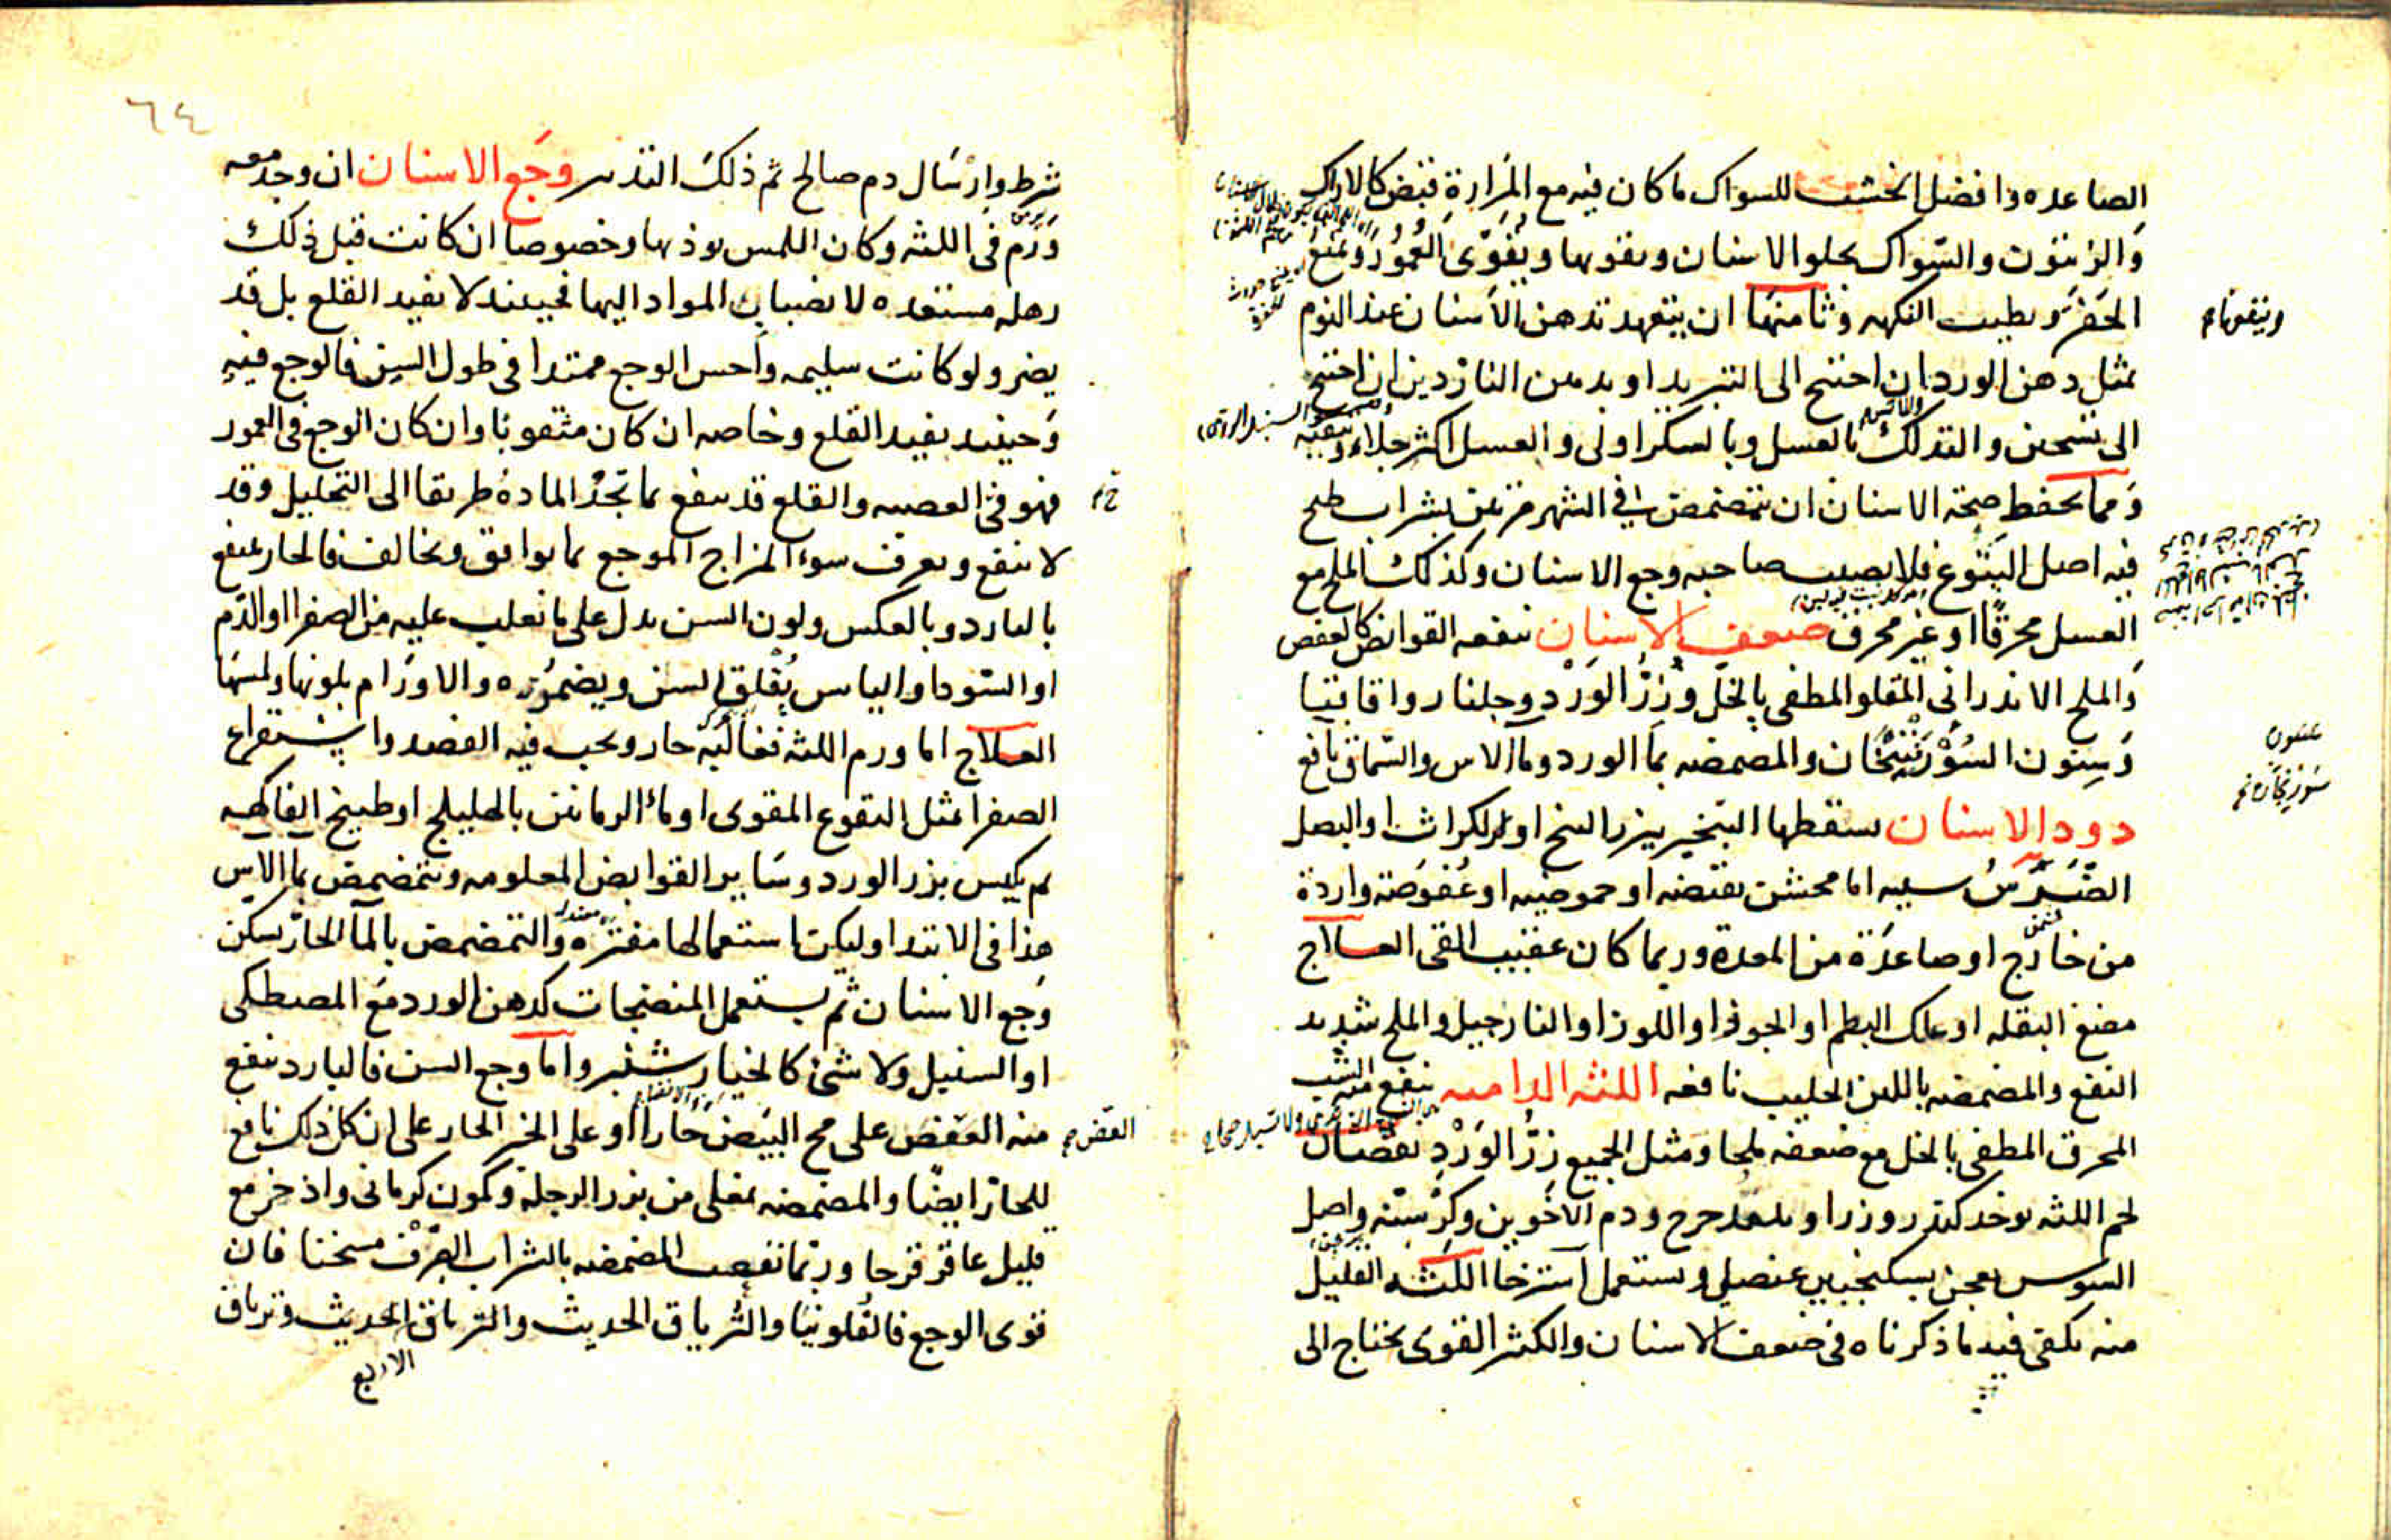 الصاعده وافضل الخشب للسواك ما كان فيه مع المرارة قبض كالاراك
والزيتون والسواك يجلو الاسنان ويقويها ويقوى العمور ويمنع
الحفر ويطيب النكهه وثامنها ان يتعهد تدهن الاسنان عند النوم
بمثل دهن الورد ان احتيج الى التبريد او بدهن الناردين ان احتيج
الى تسخين والتدلك بالعسل وبالسكر اولى والعسل اكثر جلاء وتنقيه
ومما يحفظ صحة الاسنان ان يتمضمض في الشهر مرتين بشراب طبخ
فيه اصل اليتوع فلا يصيب صاحبه وجع الاسنان وكذلك الملح مع
العسل محرقا او غير محرق ضعف الاسنان ينفعه القوابض كالعفص
والملح الاندرانى المقلو المطفى بالخل وزر الورد وجلنار واقاقيا
وسنون السورنجان والمضمضه بما الورد وما الاس والسماق نافع
دود الاسنان يسقطها التبخير ببزر البنج او بزر الكراث او البصل
الضرس سببه اما مخشن بقبضه او حموضه او عفوصة واردة
من خارج او صاعدة من المعدة وربما كان عقيب القى العلاج
مضغ البقله او علك البطم او الجوز او اللوز او النارجيل والملح شديد
النفع والمضمضه باللبن الحليب نافعه اللثه الداميه ينفع منه الشب
المحرق المطفى بالخل مع ضعفه ملحا ومثل الجميع زر الورد نقصان
لحم اللثه يوخذ كندر وزراوند مدحرج ودم الاخوين وكرسنه واصل
السوسن يعجن بسكنجبين عنصلى ويستعمل استرخا اللثه القليل
منه يكفى فيه ما ذكرناه فى ضعف الاسنان والكثير القوى يحتاج الى
سورنجان
٦٤
شرط وارسال دم صالح ثم ذلك التدبير وجع الاسنان ان وجد معه
ورم فى اللثه وكان اللمس يوذيها وخصوصا ان كانت قبل ذلك
رهله مستعده لانصباب المواد اليها فحينئذ لا يفيد القلع بل قد
يضر ولو كانت سليمه واحس الوجع ممتدا فى طول السن فالوجع فيه
وحينئذ يفيد القلع وخاصه ان كان مثقوبا وان كان الوجع فى العمور
فهو فى العصبه والقلع قد ينفع بما تجد المادة طريقا الى التحليل وقد
لا ينفع ويعرف سوء المزاج الموجع بما يوافق ويخالف فالحار ينتفع
بالبارد وبالعكس ولون السن يدل على ما يغلب عليه من الصفرا او الدم
او السودا واليابس يقلق السن ويضموره والاورام بلونها ولمسها
العلاج اما ورم اللثه فغالبه حار ويجب فيه الفصد واستفراغ
الصفرا بمثل النقوع المقوى او ماء الرمانين بالهليلج او طبيخ الفاكهه
ثم يكبس بزر الورد وساير القوابض المعلومه ويتمضمض بما الاس
هذا فى الابتدا وليكن استعمالها مفتره والتمضمض بالما الحار يسكن
وجع الاسنان ثم يستعمل المنضجات كدهن الورد مع المصطكى
او السنبل ولا شئ كالخيار شنبر واما وجع السن فالبارد ينفع
منه العض على مح البيض حارا او على الخبز الحار على ان كل ذلك نافع
للحار ايضا والمضمضه بمغلى من بزر الرجلة وكمون كرمانى واذخر مع
قليل عاقرقرحا وربما نفعت المضمضه بالشراب الصرف مسخنا فان
قوى الوجع فالفلونيا والترياق الحديث والترياق الحديث وترياق
الاربع
العض